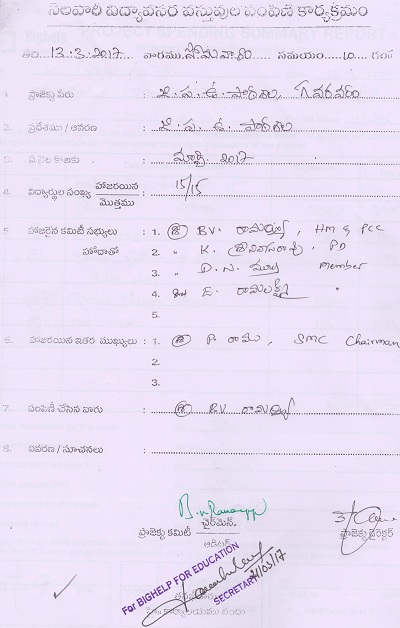 నెలవారీ విద్యావసర వస్తువుల పంపిణి కార్యక్రమం
తేది. 13.3.2017 వారము సోమవారం సమయం 10 గం॥
1. ప్రాజెక్టు పేరు : జి.ప.ఉ. పాఠశాల, గవరవరం
2. ప్రదేశము / ఆవరణ : జి.ప.ఉ. పాఠశాల
3. ఏ నెల కొఱకు : మార్చి 2017
4. విద్యార్థుల సంఖ్య హాజరయిన / మొత్తము : 15/15
5. హాజరైన కమిటీ సభ్యులు : 1. శ్రీ B.V. రామయ్య, HM & PCC
హోదాతో 2. " K. శ్రీనివాసరావు, PD
3. " D.N. మూర్తి member
4. E. రామలక్ష్మి "
5.
6. హాజరయిన ఇతర ముఖ్యులు : 1. శ్రీ P. రాము, SMC Chairman
2.
3.
7. పంపిణీ చేసిన వారు : శ్రీ B.V. రామయ్య
8. వివరణ / సూచనలు :
B.V. Ramayya
ప్రాజెక్టు కమిటీ చైర్‌మెన్. ప్రాజెక్టు డైరెక్టర్
ఆడిటర్
For BIGHELP FOR EDUCATION
SECRETARY 21/03/17